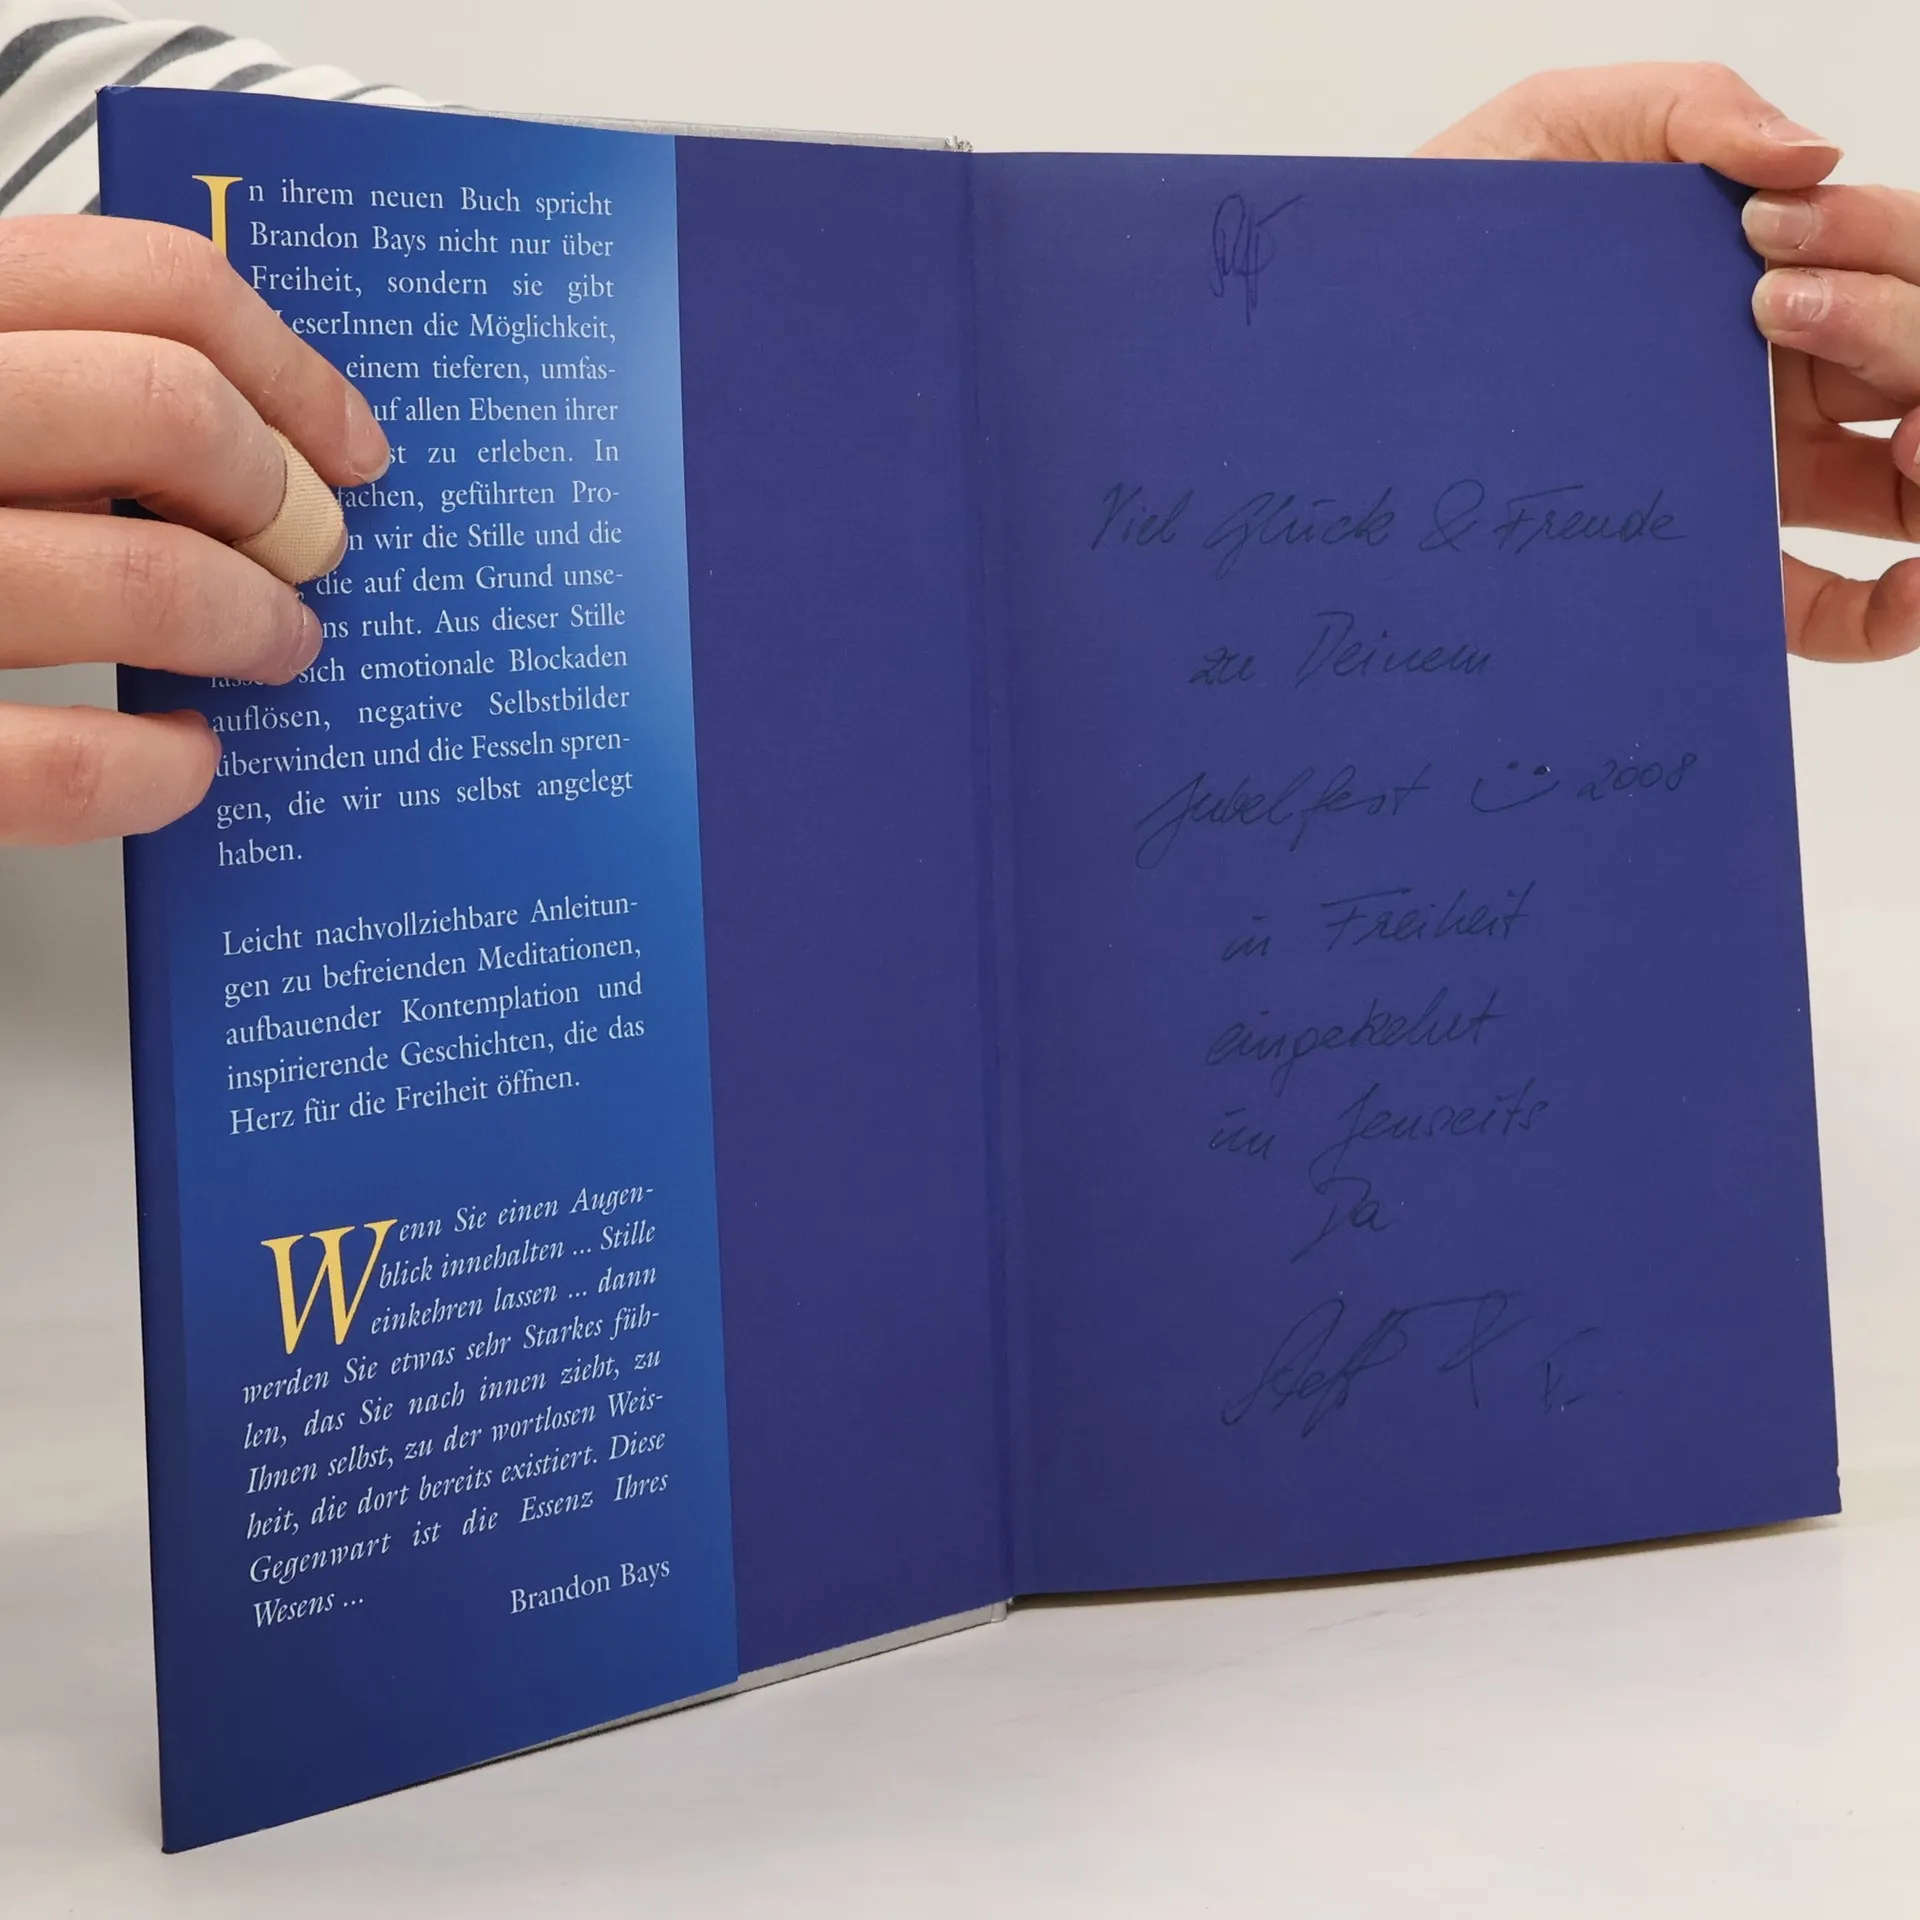 In ihrem neuen Buch spricht
Brandon Bays nicht nur über
Freiheit, sondern sie gibt
LeserInnen die Möglichkeit,
einem tieferen, umfas-
uf allen Ebenen ihrer
st zu erleben. In
fachen, geführten Pro-
n wir die Stille und die
, die auf dem Grund unse-
ns ruht. Aus dieser Stille
sich emotionale Blockaden
auflösen, negative Selbstbilder
überwinden und die Fesseln spren-
gen, die wir uns selbst angelegt
haben.
Leicht nachvollziehbare Anleitun-
gen zu befreienden Meditationen,
aufbauender Kontemplation und
inspirierende Geschichten, die das
Herz für die Freiheit öffnen.
Wenn Sie einen Augen-
blick innehalten ... Stille
einkehren lassen ... dann
werden Sie etwas sehr Starkes füh-
len, das Sie nach innen zieht, zu
Ihnen selbst, zu der wortlosen Weis-
heit, die dort bereits existiert. Diese
Gegenwart ist die Essenz Ihres
Wesens ...
Brandon Bays
Viel Glück & Freude
zu Deinem
Jubelfest 2008
in Freiheit
eingekehrt
im Jenseits
Da